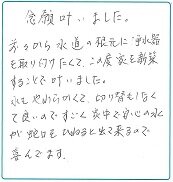 念願叶いました。
前々から水道の根元に浄水器
を取り付けたくて、この度家を新築
することで叶いました。
水もやわらかくて、切り替もしなく
て良いのですごく楽で安心の水
が蛇口をひねると出て来るので
喜んでます。